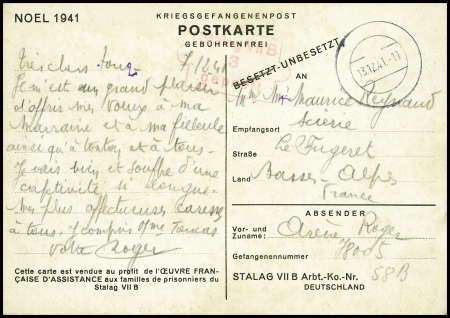 NOEL 1941
KRIEGSGEFANGENENPOST
POSTKARTE
GEBÜHRENFREI
BESETZT-UNBESETZT
13.12.41.-11
AN
Très chers tous
Je m'est un grand plaisir
d'offrir mes vœux à ma
Marraine et à ma filleule
ainsi qu'à tonton et à tous-
Je vais bien et souffre d'une
captivité si longue-
Mes plus affectueuses caresses
à tous. Y compris
Votre Roger
Cette carte est vendue au profit de l'ŒUVRE FRAN-
ÇAISE D'ASSISTANCE aux familles de prisonniers du
Stalag VII B
Maurice Reynaud
Empfangsort Scierie
Straße Le Fugeret
Land Basses-Alpes
France
ABSENDER
Vor- und
Zuname: Roger
Gefangenennummer 18005
STALAG VII B Arbt.-Ko.-Nr. 58B
DEUTSCHLAND